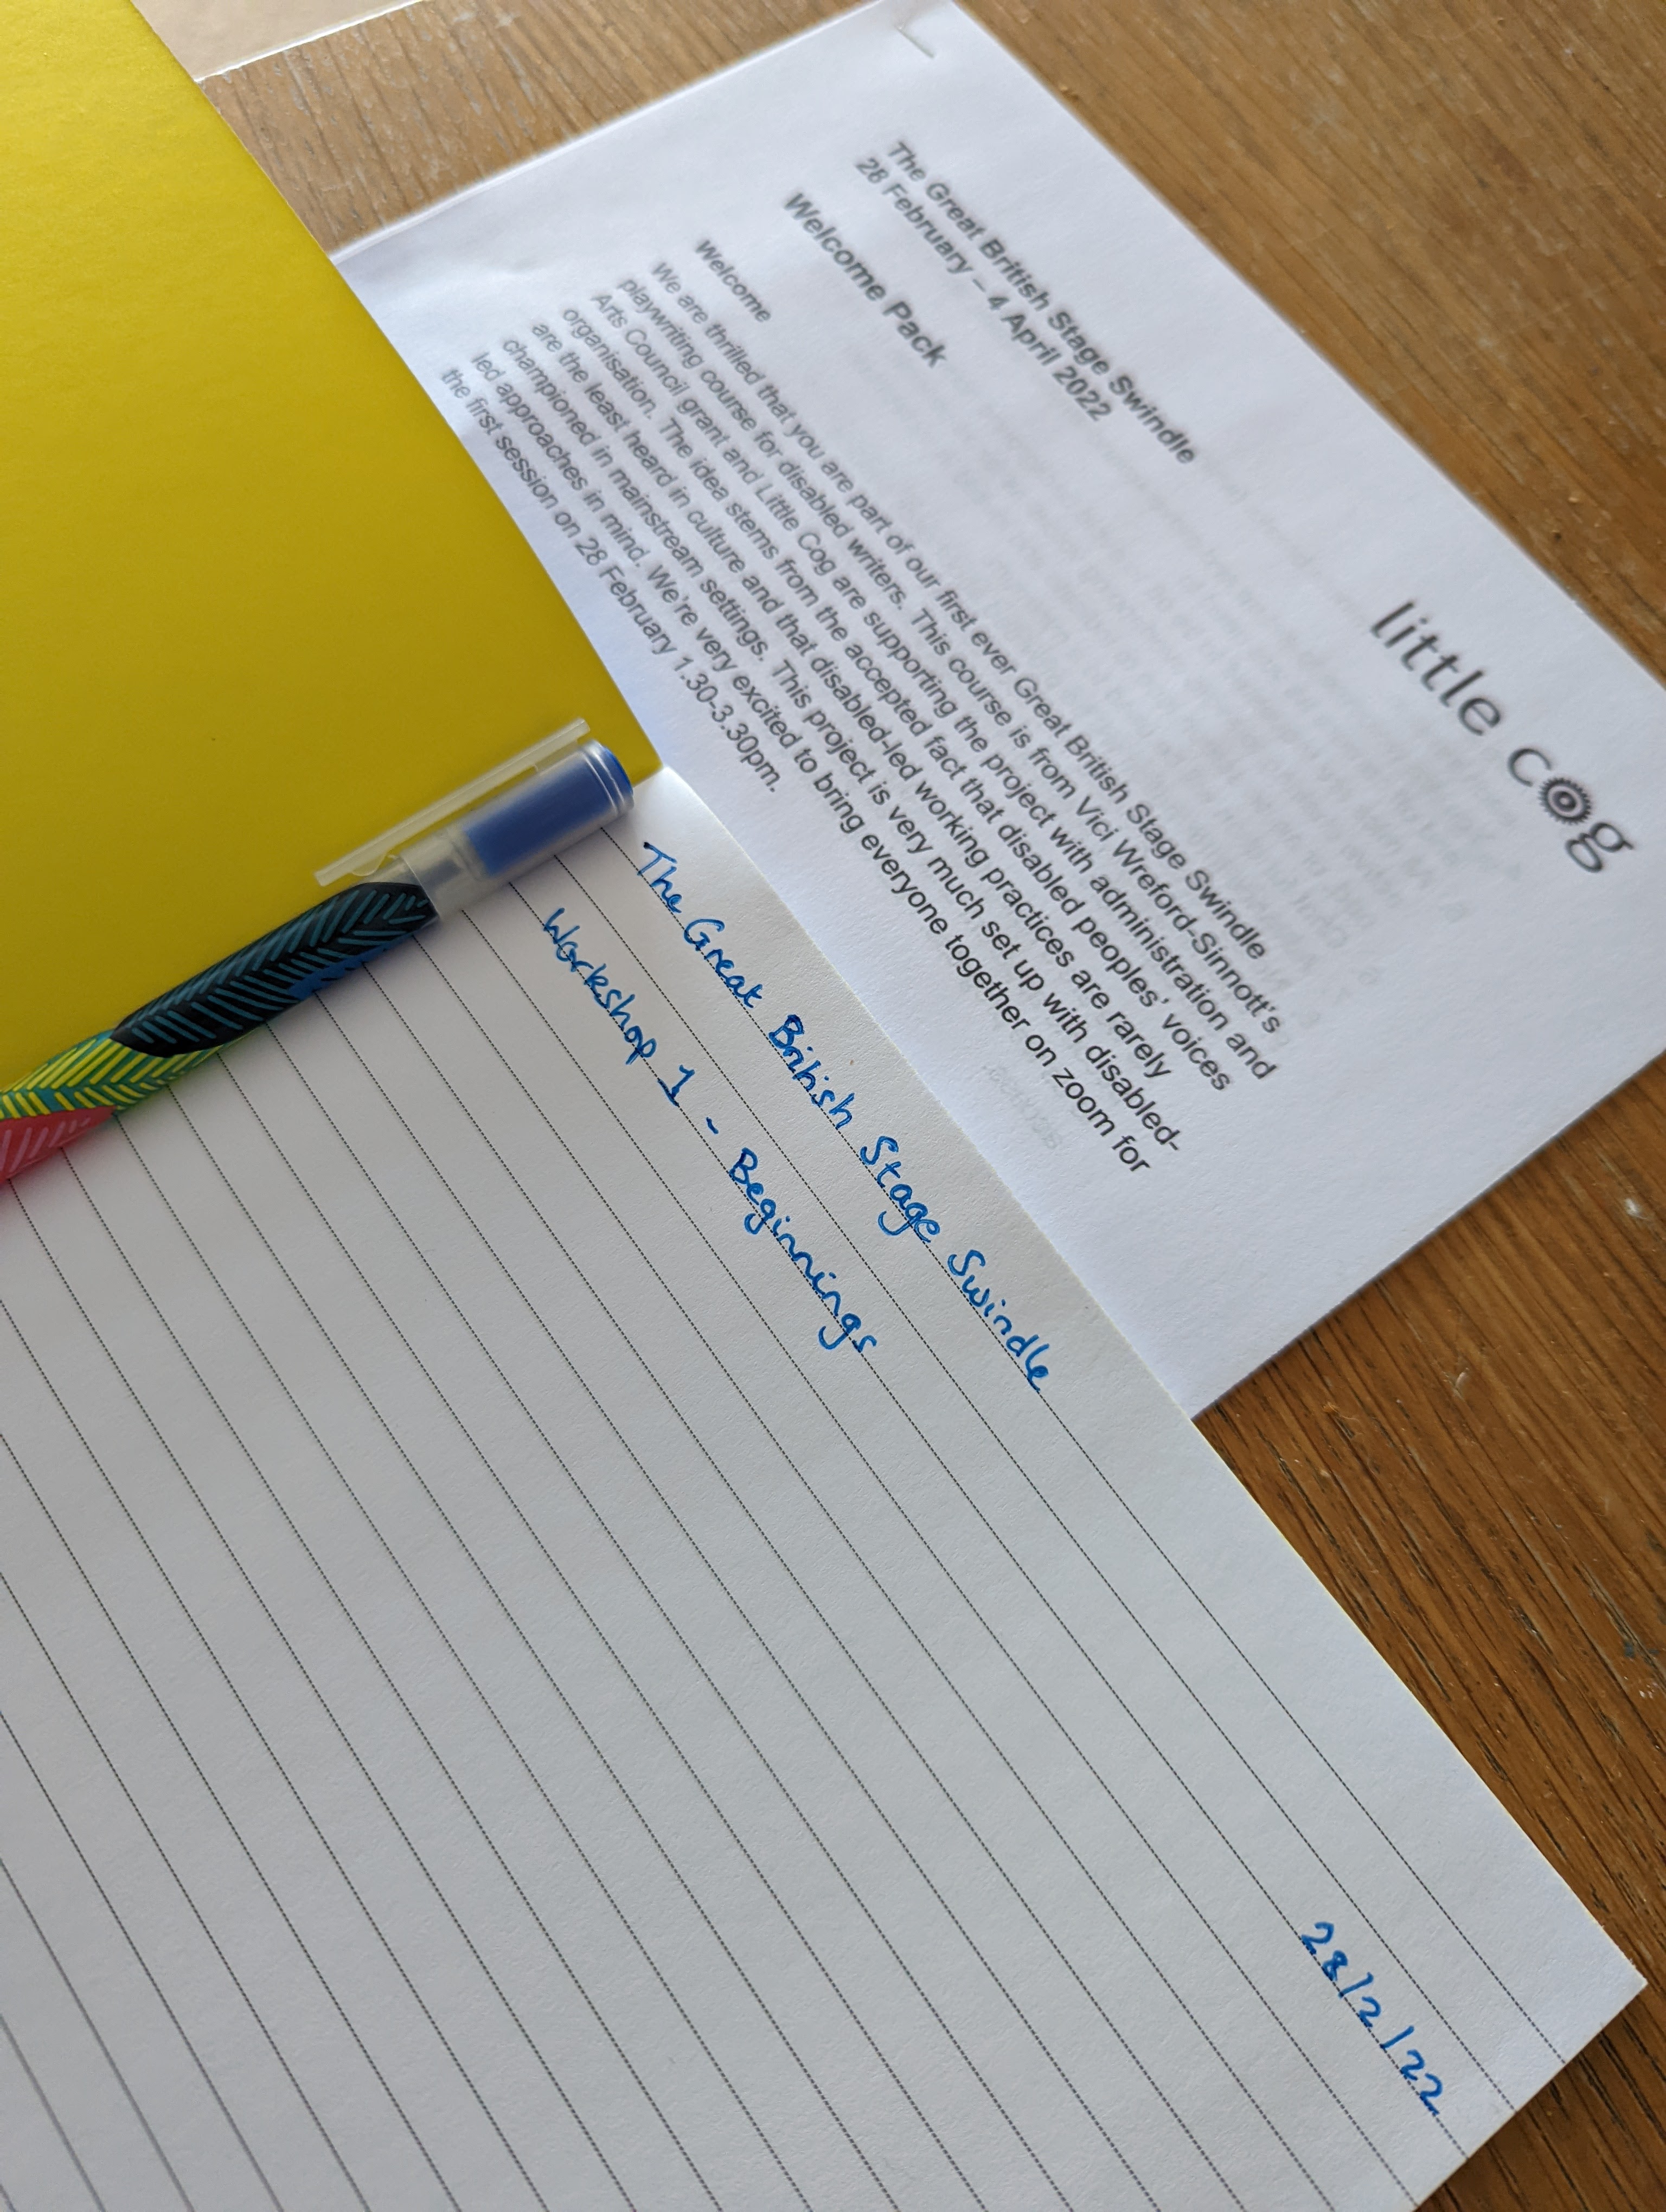 little cog
The Great British Stage Swindle
28 February – 4 April 2022
Welcome Pack
Welcome
We are thrilled that you are part of our first ever Great British Stage Swindle
playwriting course for disabled writers. This course is from Vici Wreford-Sinnott's
Arts Council grant and Little Cog are supporting the project with administration and
organisation. The idea stems from the accepted fact that disabled peoples' voices
are the least heard in culture and that disabled-led working practices are rarely
championed in mainstream settings. This project is very much set up with disabled-
led approaches in mind. We're very excited to bring everyone together on zoom for
the first session on 28 February 1.30-3.30pm.
The Great British Stage Swindle
Workshop 1 - Beginnings
28/2/22